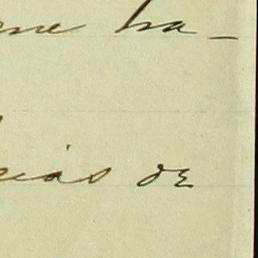 me ha-
rias de